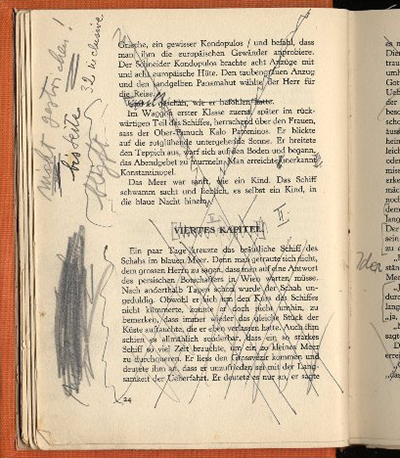 nicht gestrichen!
bis Seite
32 inclusive
Grieche, ein gewisser Kondopulos / und befahl, dass
man ihm die europäischen Gewänder anprobiere.
Der Schneider Kondopulos brachte acht Anzüge mit
und acht europäische Hüte. Den taubengrauen Anzug
und den sandgelben Panamahut wählte der Herr für
die Reise.
geschah, wie er befohlen hatte.
Im Waggon erster Klasse zuerst, später im rück-
wärtigen Teil des Schiffes, herrschend über den Frauen,
sass der Ober-Eunuch Kalo Patominos. Er blickte
auf die rotglühende untergehende Sonne. Er breitete
den Teppich aus, warf sich auf den Boden und begann,
das Abendgebet zu murmeln. Man erreichte unerkannt
Konstantinopel.
Das Meer war sanft, wie ein Kind. Das Schiff
schwamm sacht und lieblich, es selbst ein Kind, in
die blaue Nacht hinein.
II.
VIERTES KAPITEL
Ein paar Tage kreuzte das bräutliche Schiff des
Schahs im blauen Meer. Denn man getraute sich nicht,
dem grossen Herrn zu sagen, dass man auf eine Antwort
des persischen Botschafters in Wien warten müsse.
Nach anderthalb Tagen schon wurde der Schah un-
geduldig. Obwohl er sich um den Kurs des Schiffes
nicht kümmerte, konnte er doch nicht umhin, zu
bemerken, dass immer wieder das gleiche Stück der
Küste auftauchte, die er eben verlassen hatte. Auch ihm
schien es allmählich sonderbar, dass ein so starkes
Schiff so viel Zeit brauchte, um ein so kleines Meer
zu durchqueren. Er liess den Grosswesir kommen und
deutete ihm an, dass er unzufrieden sei mit der Lang-
samkeit der Ueberfahrt. Er deutete es nur an, er sagte
24